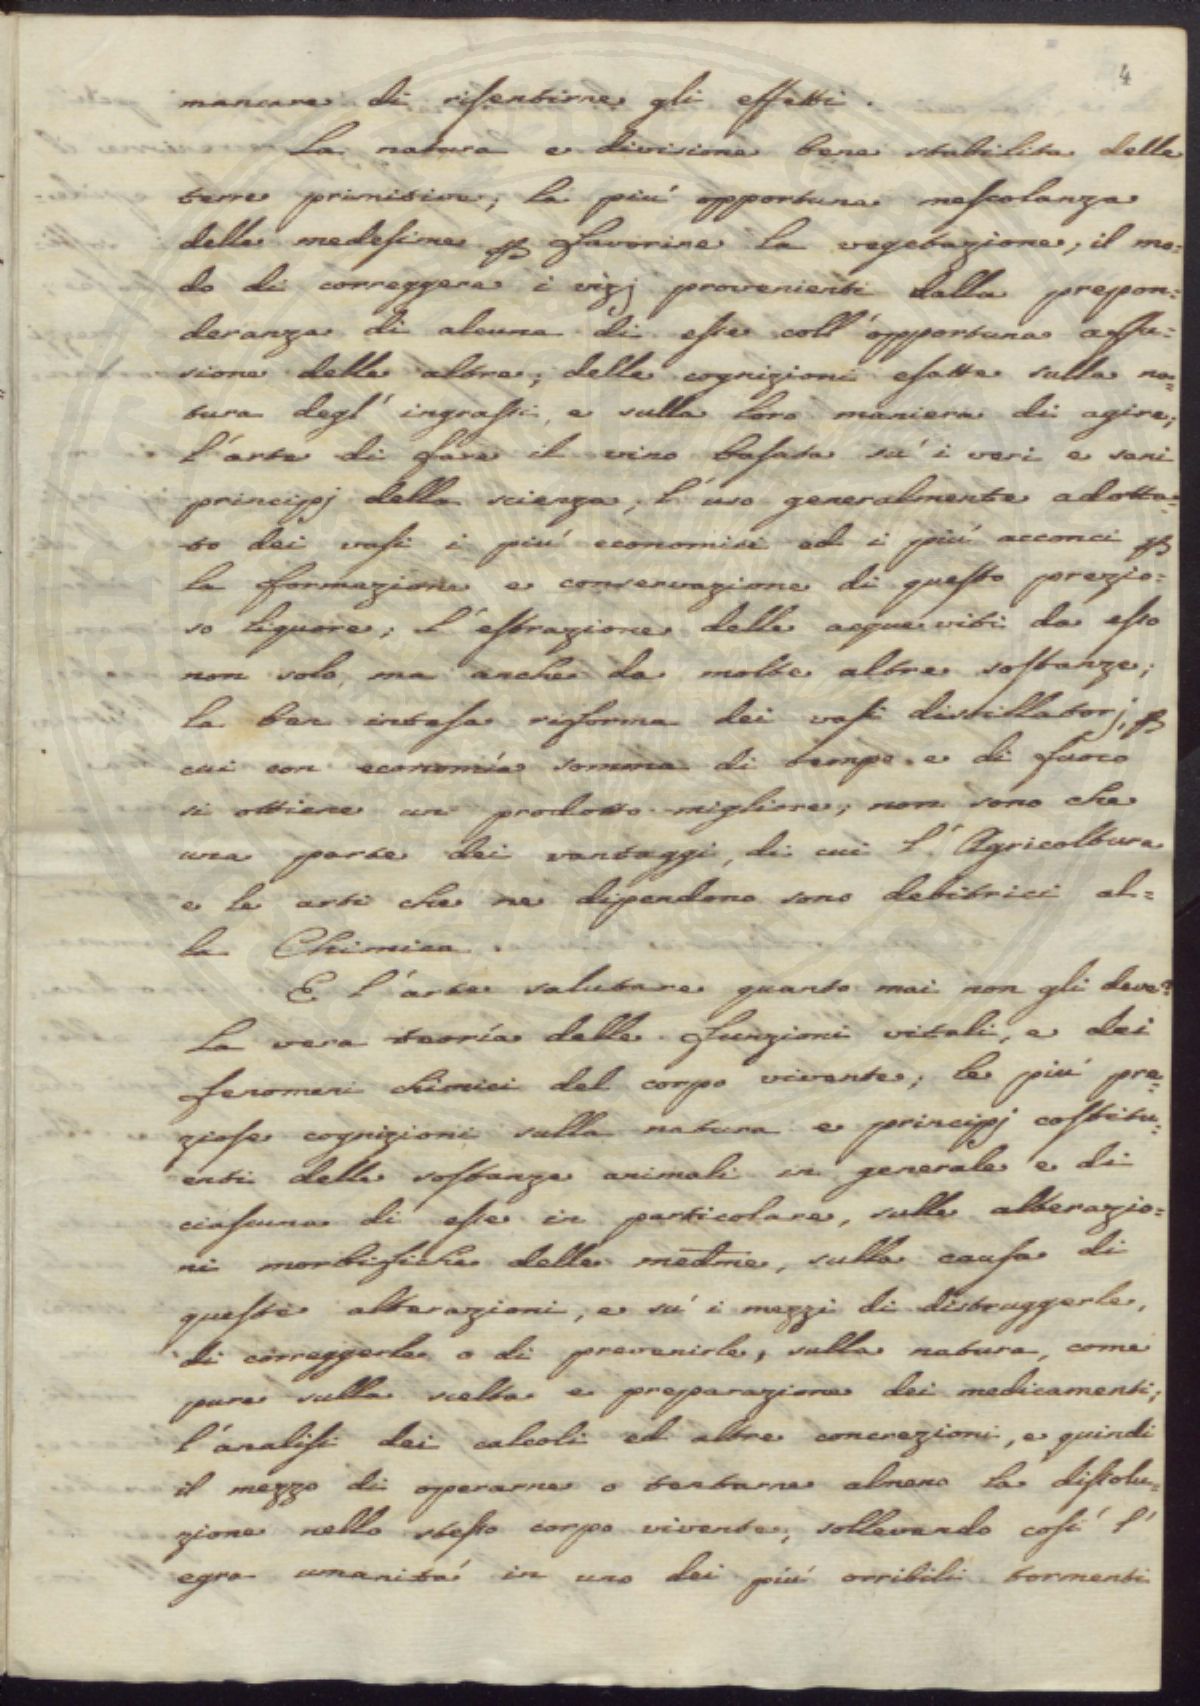 4
mancare di risentirne gli effetti.
La natura e divisione bene stabilita delle
terre primitive; la più opportuna mescolanza
delle medesime per favorire la vegetazione; il mo=
do di correggere i vizj provenienti dalla prepon=
deranza di alcuna di esse coll'opportuna affu=
sione delle altre; delle cognizioni esatte sulla na=
tura degl'ingrassi, e sulla loro maniera di agire;
l'arte di fare il vino basata su' i veri e sani
principj della scienza; l'uso generalmente adotta=
to dei vasi i più economici ed i più acconci per
la formazione e conservazione di questo prezio=
so liquore; l'estrazione delle acqueviti da esso
non solo, ma anche da molte altre sostanze;
la ben intesa riforma dei vasi distillatorj, per
cui con economía somma di tempo e di fuoco
si ottiene un prodotto migliore; non sono che
una parte dei vantaggi, di cui l'Agricoltura
e le arti che ne dipendono sono debitrici al=
la Chimica.
E l'arte salutare quanto mai non gli deve?
La vera teoría delle funzioni vitali, e dei
fenomeni chimici del corpo vivente; le più pre=
ziose cognizioni sulla natura e principj costitu=
enti delle sostanze animali in generale e di
ciascuna di esse in particolare, sulle alterazio=
ni morbifiche delle medme, sulla causa di
queste alterazioni, e su' i mezzi di distruggerle,
di correggerle o di prevenirle, sulla natura, come
pure sulla scelta e preparazione dei medicamenti;
l'analisi dei calcoli ed altre concrezioni, e quindi
il mezzo di operarne o tentarne almeno la dissolu=
zione nello stesso corpo vivente, sollevando così l'
egra umanità in uno dei più orribili tormenti